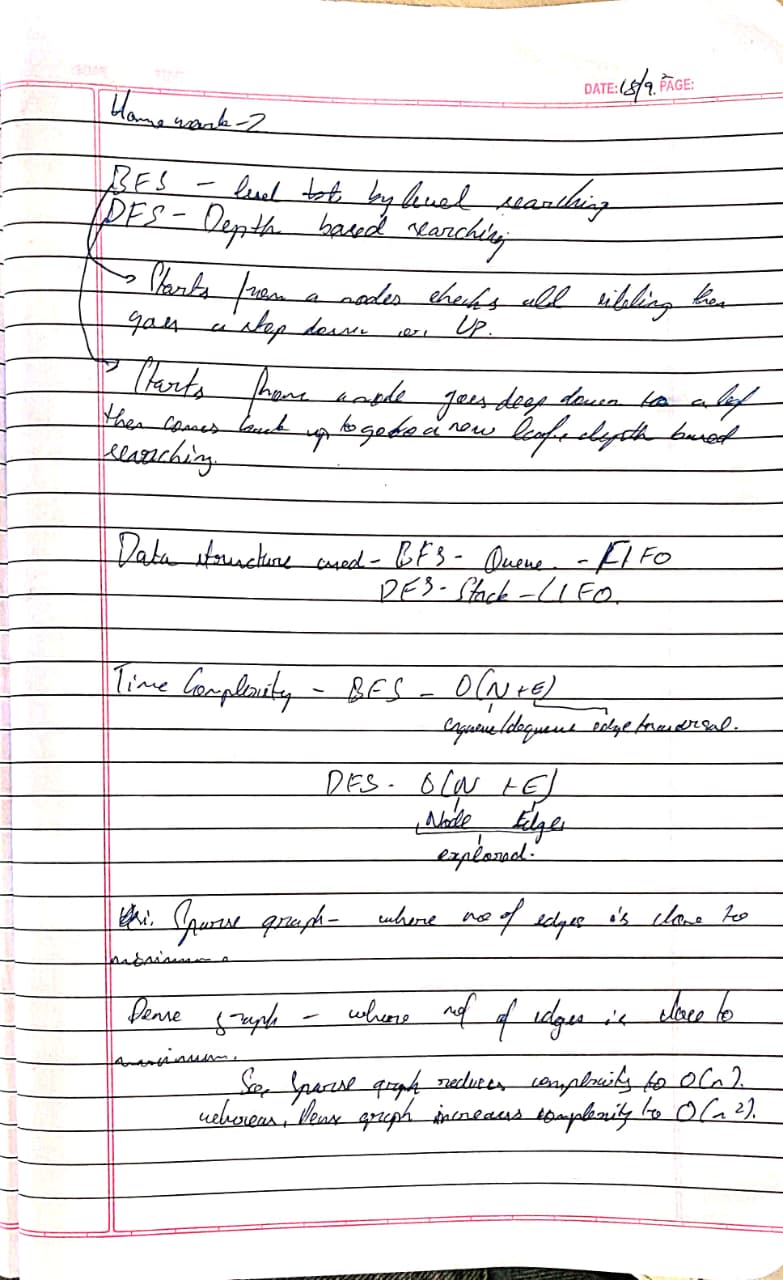 DATE: 18/9. PAGE: 2
Home work-2
BFS - level by level searching
DFS - Depth based searching
→ Starts from a nodes checks all sibling then
goes a step down or UP.
→ Starts from a node goes deep down to a lef
then comes back up to go to a new leaf, depth based
searching.
Data structure used - BFS - Queue. - FIFO
DFS - Stack - LIFO.
Time Complexity - BFS - O(N+E)
enqueue/dequeue edge traversal.
DFS - O(N+E)
Node Edge
explored.
Sparse graph - where no of edges is close to
minimum.
Dense graph - where no of edges is close to
maximum.
So, Sparse graph reduces complexity to O(n).
whereas, Dense graph increases complexity to O(n2).